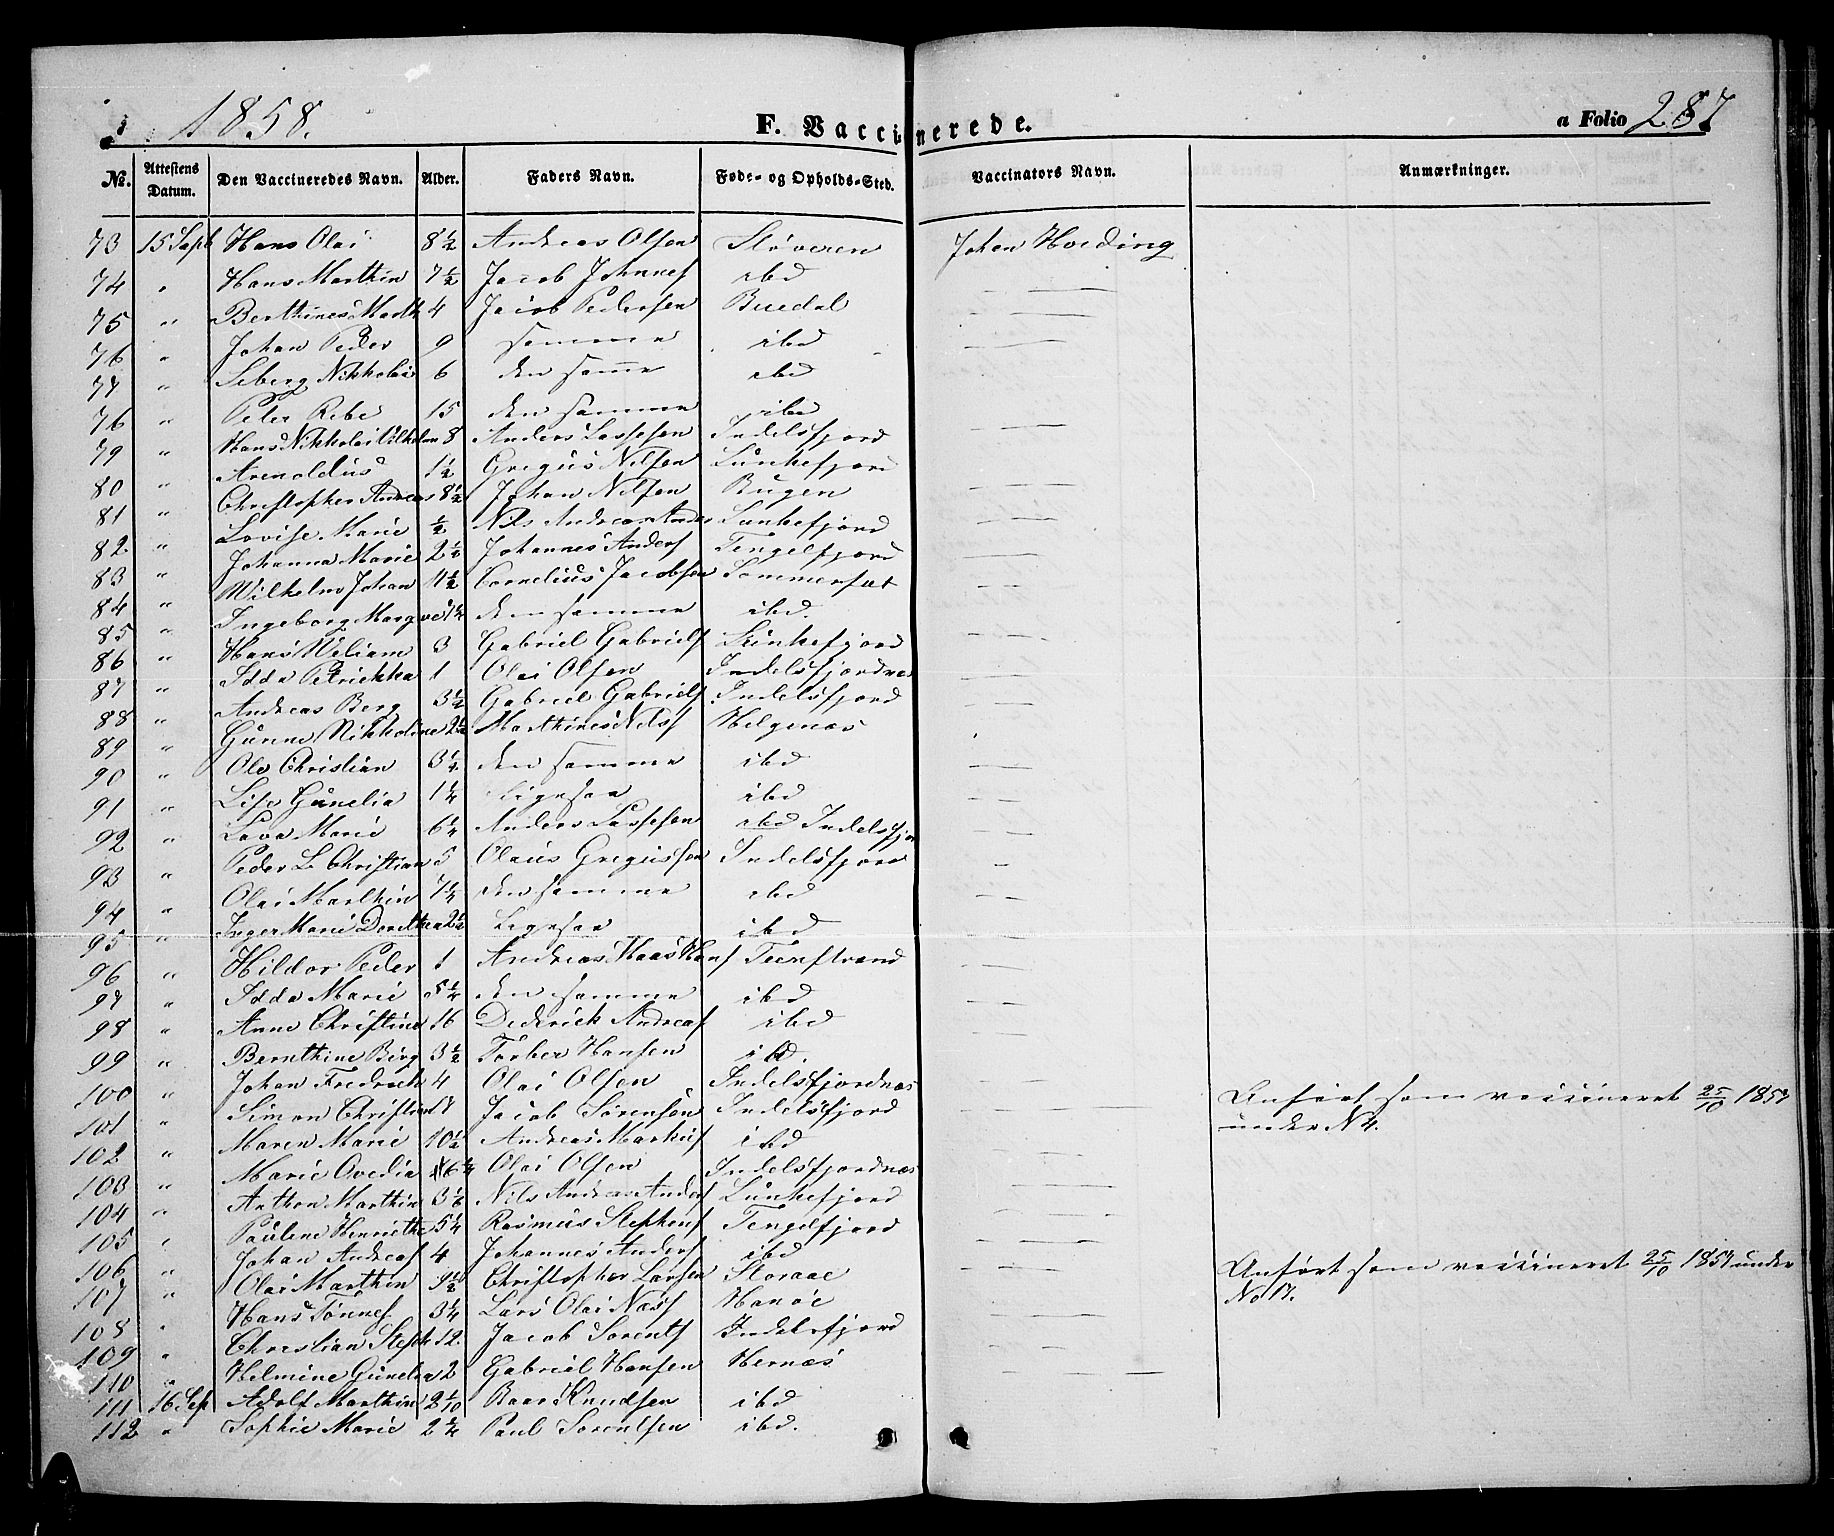 1858.
F. Vaccinerede.
a Folio 287
No. Attestens Datum. Den Vaccineredes Navn. Alder. Faders Navn. Føde- og Opholds-Sted. Vaccinators Navn. Anmærkninger.
73 15 Sept Hans Olai 8½ Andreas Olsen Støveren Johan Hveding
74 " Hans Marthin 7½ Jacob Johnnes ibd
75 " Berthines Marth 4 Jacob Pedersen Buedal
76 " Johan Peder 9 samme ibd
77 " Seberg Nikkolai 6 den same ibd
76 " Peter Rebe 15 den samme ibd
79 " Hans Nikkolai Vilhelm 8 Anders Lassesen Indelsfjord
80 " Arenoldus 1½ Gregus Nilsen Lunkefjord
81 " Christopher Andreas 8½ Johan Nilsen Bugen
82 " Lovise Marie ½ Nils Andreas Anders Lunkefjord
83 " Johanna Marie 2½ Johannes Anders Tengelfjord
84 " Wilhelm Johan 4½ Cornelius Jacobsen Sommerset
85 " Ingeborg Margve 1¼ den samme ibd.
86 " Hans Wiliam 3 Gabriel Gabriels Lunkefjord
87 " Idda Petrickka 1 Olai Olsen Indelsfjordnæs
88 " Andreas Berg 3½ Gabriel Gabriels Indelsfjord
89 " Gunne Nikholine 2¼ Marthines Nils Helgenæs
90 " Ole Christian 3½ den samme ibd
91 " Lise Gunelia 1¼ Ligesaa ibd
92 " Lava Marie 6¼ Anders Lassesen ibd Indelsfjor
93 " Peder L. Christian 5 Olaus Gregussen Indelsfjord
94 " Olai Marthin 7¼ den samme ibd
95 " Inger Marie Dorethea 2½ Ligesaa ibd
96 " Hildor Peder 1 Andreas Maas Hans Teenstrand
97 " Idda Marie 5¼ den samme ibd
98 " Anne Christine 16 Diderick Andreas ibd
99 " Bernthine Birg 3½ Torber Hansen ibd.
100 " Johan Fredrick 4 Olai Olsen Indelsfjordnæs
101 " Simon Christian Jacob Sørensen Indelsfjord Anført som vaccineret 25/10 1857
under N 4.
102 " Maren Marie 10½ Andreas Markus ibd
103 " Marie Ovedia 6¼ Olai Olsen Indelsfjordnæs
104 " Anthon Marthin 3½ Nils Andreas Anders Lunkefjord
105 " Pauline Henriethe 5¼ Rasmus Stephens Tengelfjord
106 " Johan Andreas 4 Johannes Anders ibd
107 " Olai Marthin 9½ Christopher Larsen Storaae Anført som vaccineret 25/10 1857 under
No 17.
108 " Hans Tønnes 3¼ Lars Olai Næss Hanøe
109 " Christian Steph 12. Jacob Sorents Indelsfjord
110 " Helmine Gunelia 2 Gabriel Hansen Hernæs
111 16 Sep Adolf Marthin 2 1/10 Baar Knudsen ibd
112 " Sophie Marie 2¼ Paul Sorentsen ibd.